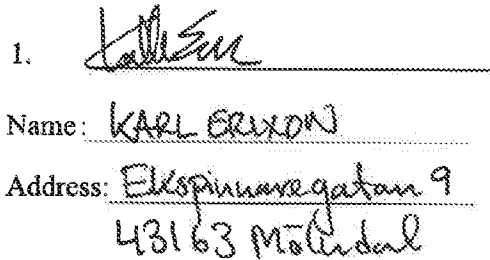 1.
Name: KARL ERIXON
Address: Ekspinnaregatan 9
43163 Mölndal